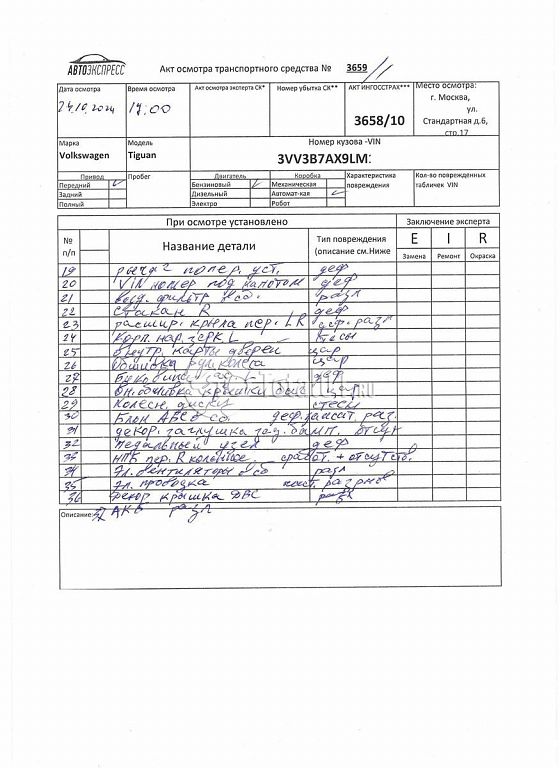 АВТОЭКСПРЕСС
Акт осмотра транспортного средства № 3659
Дата осмотра
24.10.2024
Время осмотра
17:00
Акт осмотра эксперта СК*
Номер убытка СК**
АКТ ИНГОССТРАХ***
3658/10
Место осмотра:
г. Москва,
ул.
Стандартная д.6,
стр.17
Марка
Volkswagen
Модель
Tiguan
Номер кузова -VIN
3VV3B7AX9LM
Привод
Передний
Задний
Полный
Пробег
Двигатель
Бензиновый
Дизельный
Электро
Коробка
Механическая
Автомат-кая
Робот
Характеристика
повреждения
Кол-во поврежденных
табличек VIN
При осмотре установлено
Заключение эксперта
№
п/п
Название детали
Тип повреждения
(описание см.Ниже
E I R
Замена Ремонт Окраска
19 попер. уст. деф
20 VIN номер под капотом деф
21 возд. фильтр в сб. разл
22 Стакан R деф
23 расшир. крыла пер. LR деф. разл
24 Корп. нар. зерк L тесы
25 Внутр. карты дверей цар
26 Обшивка рул. колеса цар
27 деф
28 Вн. обшивка крышки баг цар
29 Колесн. диски стесы
30 Блок АВС в сб. раз.
31 декор. заглушка зад. бамп. отсут
32 педальный узел деф
33 НПБ пер. R сработ. + отсутств.
34 Эл. вентиляторы в сб разл
35 Эл. проводка
36 декор крышка ДВС разл
Описание: 37 АКБ разл